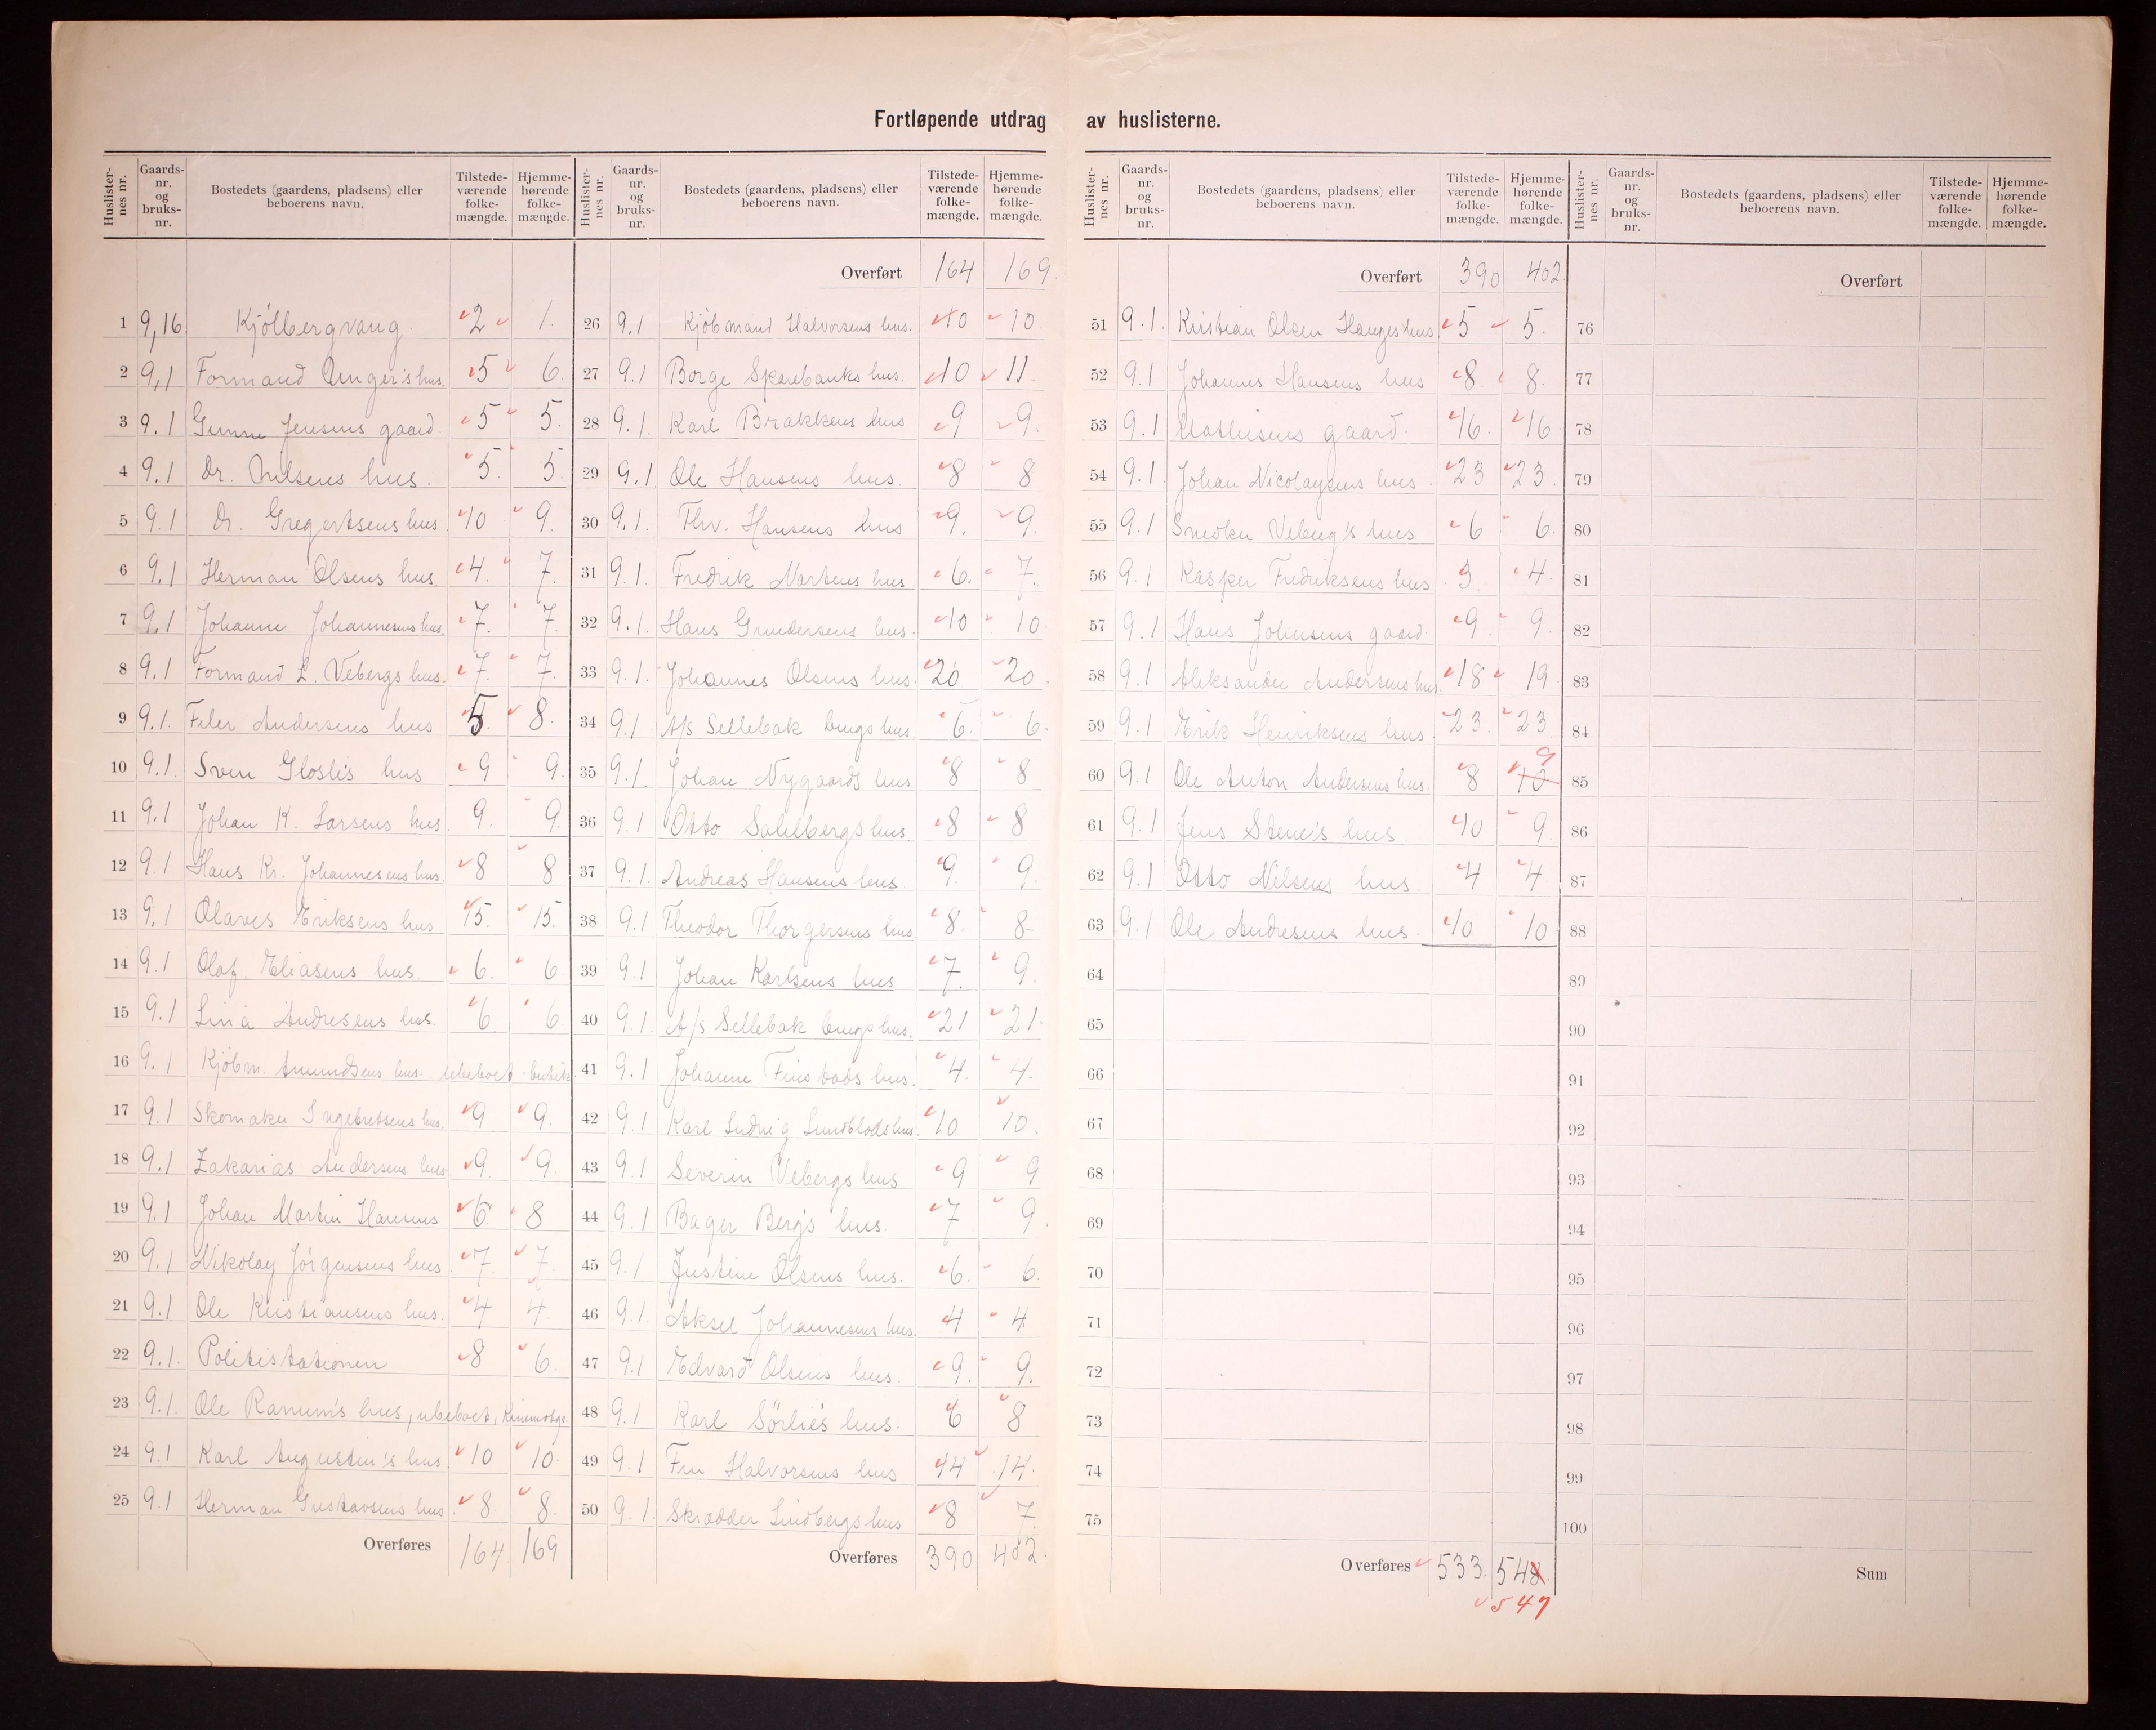 Fortløpende utdrag av huslisterne.
Huslister-nes nr. | Gaards-nr. og bruks-nr. | Bostedets (gaardens, pladsens) eller beboerens navn. | Tilstede-værende folke-mængde. | Hjemme-hørende folke-mængde.
1 9,16 Kjölbergvang 2 1.
2 9,1 Formand Unger's hus. 5 6.
3 9.1 Jensens gaard. 5 5.
4 9.1 Dr. Nilsens hus. 5. 5
5 9.1 Dr. Gregertsens hus. 10 9.
6 9.1 Herman Olsens hus. 4. 7.
7 9.1 Johanne Johannesens hus. 7. 7.
8 9.1 Formand L. Vebergs hus. 7. 7.
9 9.1. Andersens hus 5. 8.
10 9.1. Sven Gloslis hus 9 9.
11 9.1 Johan K. Larsens hus. 9. 9.
12 9.1 Hans Kr. Johannesens hus. 8 8
13 9.1 Olaves Eriksens hus 15. 15.
14 9.1 Olaf Eliasens hus. 6. 6.
15 9.1 Lina Andresens hus. 6. 6.
16 9.1 Kjöbm. Amundsens hus. ubeboet - butik
17 9.1 Skomaker Ingebretsens hus. 9 9.
18 9.1 Zakarias Andersens hus 9. 9.
19 9.1 Johan Martin Hansens 6. 8
20 9.1 Nikolay Jörgensens hus 7. 7.
21 9.1 Ole Kristiansens hus. 4 4.
22 9.1. Politistationen 8 6.
23 9.1. Ole Ramm's hus, ubeboet, Kinematogr.
24 9.1 Karl Augustin's hus 10 10.
25 9.1 Herman Gustavsens hus. 8. 8.
Overføres 164 169
Huslister-nes nr. | Gaards-nr. og bruks-nr. | Bostedets (gaardens, pladsens) eller beboerens navn. | Tilstede-værende folke-mængde. | Hjemme-hørende folke-mængde.
Overført 164 169.
26 9.1 Kjöbmand Halvorsens hus. 10 10
27 9.1 Borge Sparebanks hus. 10 11.
28 9.1. Karl Brakkens hus 9 9.
29 9.1. Ole Hansens hus. 8 8
30 9.1. Thv. Hansens hus 9. 9.
31 9.1. Fredrik Martens hus. 6. 7.
32 9.1. Hans Gundersens hus. 10 10.
33 9.1. Johannes Olsens hus. 20 20.
34 9.1 A/s Sellebak brugs hus. 6. 6.
35 9.1. Johan Nygaards hus 8 8
36 9.1 Otto Sahlbergs hus. 8 8
37 9.1. Andreas Hansens hus. 9. 9.
38 9.1 Theodor Thorgersens hus 8. 8
39 9.1 Johan Karlsens hus 7. 9.
40 9.1. A/s Sellebak brugs hus. 21 21.
41 9.1 Johanne Finstads hus. 4. 4.
42 9.1 Karl Ludvig Lundblads hus. 10 10.
43 9.1 Severin Vebergs hus 9 9
44 9.1 Bager Berg's hus. 7. 9.
45 9.1 Justine Olsens hus. 6. 6.
46 9.1. Aksel Johannesens hus. 4 4
47 9.1 Edvard Olsens hus. 9. 9.
48 9.1 Karl Sörlie's hus. 6 8
49 9.1 Fru Halvorsens hus 14 14.
50 9.1. Skrædder Lindbergs hus 8 7.
Overføres 390 402.
Huslister-nes nr. | Gaards-nr. og bruks-nr. | Bostedets (gaardens, pladsens) eller beboerens navn. | Tilstede-værende folke-mængde. | Hjemme-hørende folke-mængde.
Overført 390 402.
51 9.1. Kristian Olsen Hauges hus 5 5.
52 9.1 Johannes Hansens hus 8. 8.
53 9.1 gaard. 16. 16.
54 9.1. Johan Nicolaysens hus. 23 23.
55 9.1 Snedker Veberg's hus 6 6.
56 9.1 Kasper Fredriksens hus. 3 4.
57 9.1 Hans Johnsens gaard. 9. 9.
58 9.1 Aleksander Andersens hus. 18 19
59 9.1 Erik Henriksens hus. 23. 23.
60 9.1 Ole Anton Andersens hus. 8 10 9
61 9.1 Jens Stene's hus. 10 9.
62 9.1 Otto Nilsens hus. 4 4
63 9.1 Ole Andresens hus. 10 10.
64
65
66
67
68
69
70
71
72
73
74
75
Overføres 533. 548.
547
Huslister-nes nr. | Gaards-nr. og bruks-nr. | Bostedets (gaardens, pladsens) eller beboerens navn. | Tilstede-værende folke-mængde. | Hjemme-hørende folke-mængde.
Overført
76
77
78
79
80
81
82
83
84
85
86
87
88
89
90
91
92
93
94
95
96
97
98
99
100
Sum